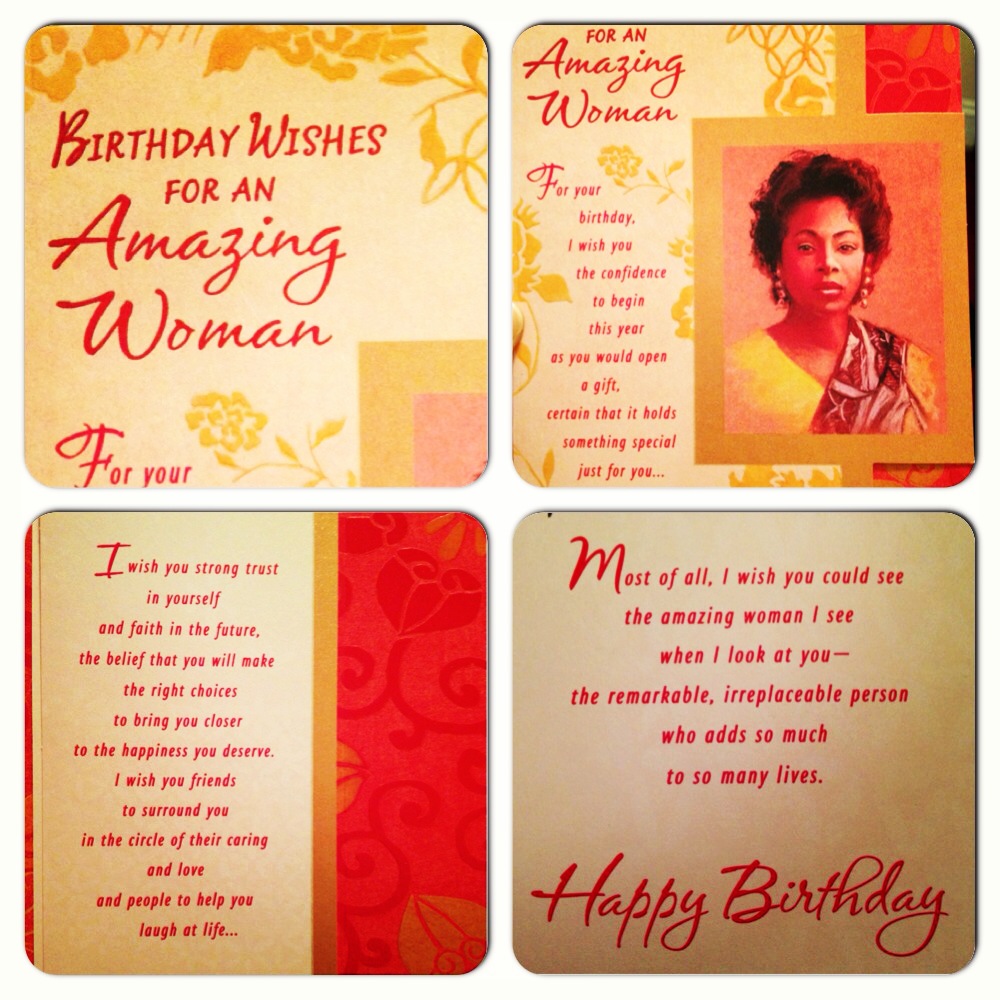 BIRTHDAY WISHES
FOR AN
Amazing
Woman
For your
FOR AN
Amazing
Woman
For your
birthday,
I wish you
the confidence
to begin
this year
as you would open
a gift,
certain that it holds
something special
just for you...
I wish you strong trust
in yourself
and faith in the future,
the belief that you will make
the right choices
to bring you closer
to the happiness you deserve.
I wish you friends
to surround you
in the circle of their caring
and love
and people to help you
laugh at life...
Most of all, I wish you could see
the amazing woman I see
when I look at you—
the remarkable, irreplaceable person
who adds so much
to so many lives.
Happy Birthday